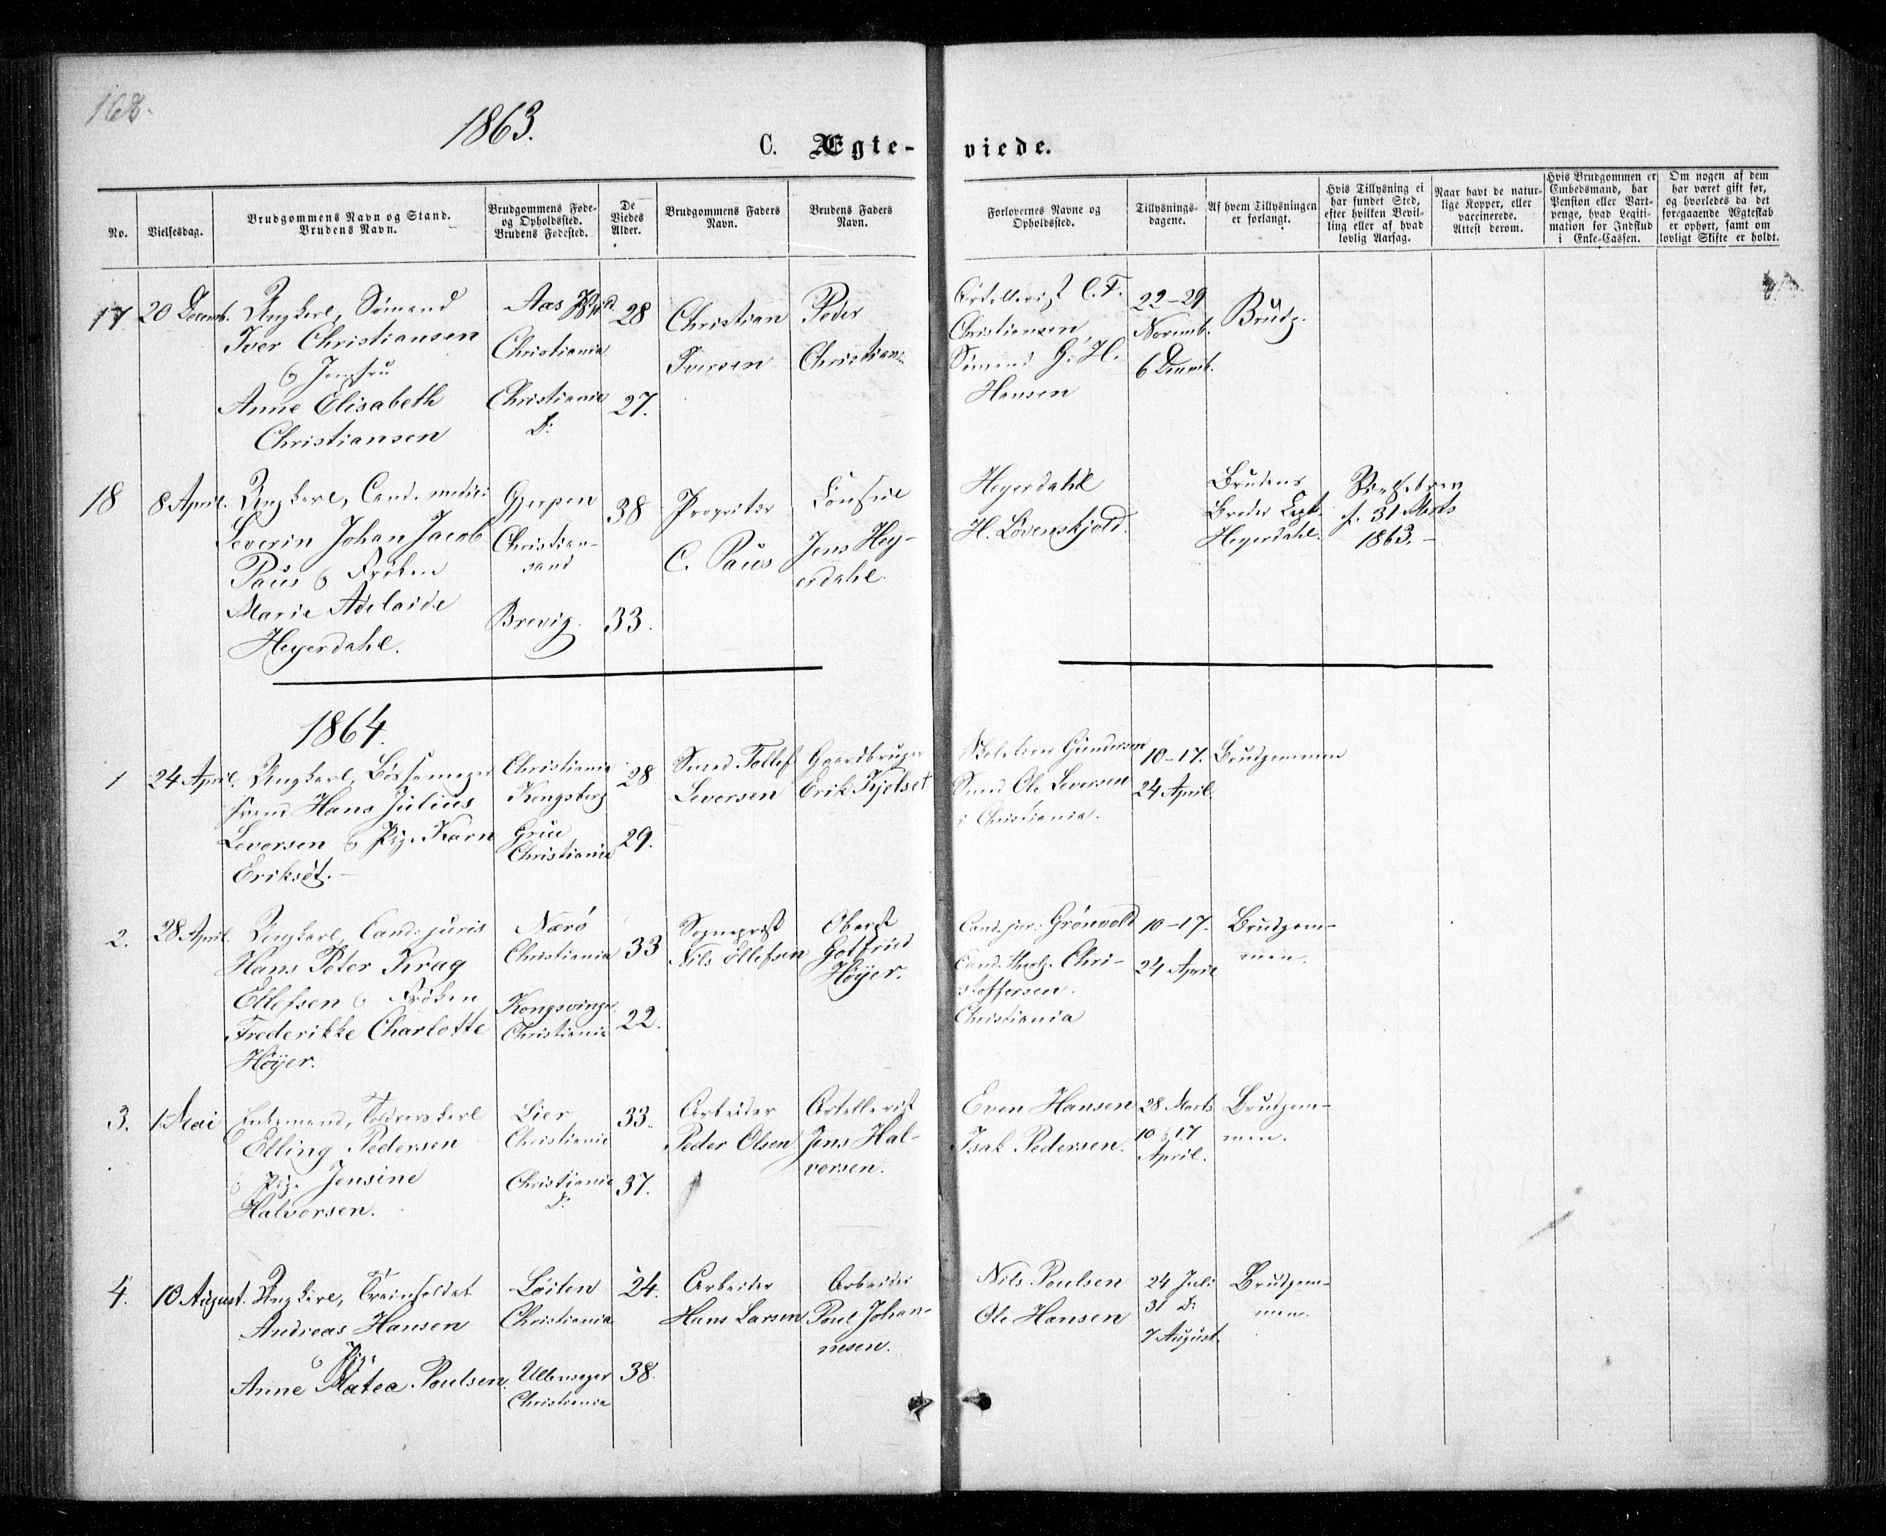 168.
1863.
C. Ægte- viede.
No.
Vielsesdag.
Brudgommens Navn og Stand.
Brudens Navn.
Brudgommens Føde-
og Opholdssted.
Brudens Fødested.
De
Viedes
Alder.
Brudgommens Faders
Navn.
Brudens Faders
Navn.
Forlovernes Navne og
Opholdssted.
Tillysnings-
dagene.
Af hvem Tillysningen
er forlangt.
Hvis Tillysning ei
har fundet Sted,
efter hvilken Bevil-
ling eller af hvad
lovlig Aarsag.
Naar havt de natur-
lige Kopper, eller
vaccinerede.
Attest derom.
Hvis Brudgommen er
Embedsmand, har
Pension eller Vart-
penge, hvad Legiti-
mation for Indskud
i Enke-Cassen.
Om nogen af dem
har været gift før,
og hvorledes da det
foregaaende Ægteskab
er ophørt, samt om
lovligt Skifte er holdt.
17
20 Decemb.
Ungkarl, Sømand
Iver Christiansen
og Jomfru
Anne Elisabeth
Christiansen
Aas
Christiania
Christiania
D:
28
27.
Christian
Iversen
Peder
Christians.
Artellerist C. F.
Christiansen
Sømand G. H.
Hansen
22–29
Novemb.
6 Decemb.
Brudg.
18
8 April.
Ungkarl, Cand. medici
Severin Johan Jacob
Paus og Frøken
Marie Adelaide
Heyerdahl.
Gjerpen
Christian-
sand
Brevig.
38
33.
Proprietær
C. Paus
Consul
Jens Hey-
erdahl.
Heyerdahl
H. Løvenskjold.
Brudens
Broder Capt.
Heyerdahl.
f. 31 Marts
1863. –
1864.
1
24 April.
Ungkarl, Bøssemager
svend Hans Julius
Leversen og Pige Karn
Eriksdt. –
Christiania
Kongsberg
Grue
Christiania
28
29.
Smed Tollef
Leversen
Gaardbruger
Erik Kjelset
Gundersen
Smed Ole Leversen
i Christiania.
10–17.
24 April.
Brudgommen
2.
28 April.
Ungkarl, Cand: juris
Hans Peter Krag
Ellefsen og Frøken
Frederikke Charlotte
Høyer.
Nærø
Christiania
Kongsvinger
Christiania
33
22.
Sogneprest
Nils Ellefsen
Oberst
Gotfried
Høyer.
Cand. jur: Grønvold
Cand. theol. Chri-
stoffersen.
Christiania
10–17.
24 April
Brudgom-
men.
3.
1 Mai
Enkemand,
Elling Pedersen
og Pige Jensine
Halvorsen.
Lier
Christiania
Christiania
D:
33.
37.
Arbeider
Peder Olsen
Artellerist
Jens Hal-
vorsen.
Even Hansen
Isak Pedersen.
28 Marts
10 & 17
April.
Brudgom-
men.
4.
10 August.
Ungkarl, Trainsoldat
Andreas Hansen
og Pige
Anne Matea Poulsen
Løiten
Christiania
Ullensager
Christiania
24.
38.
Arbeider
Hans Larsen
Arbeider
Poul Johan-
nesen.
Nils Poulsen
Ole Hansen
24 Juli
31 D:
7 August
Brudgom-
men.